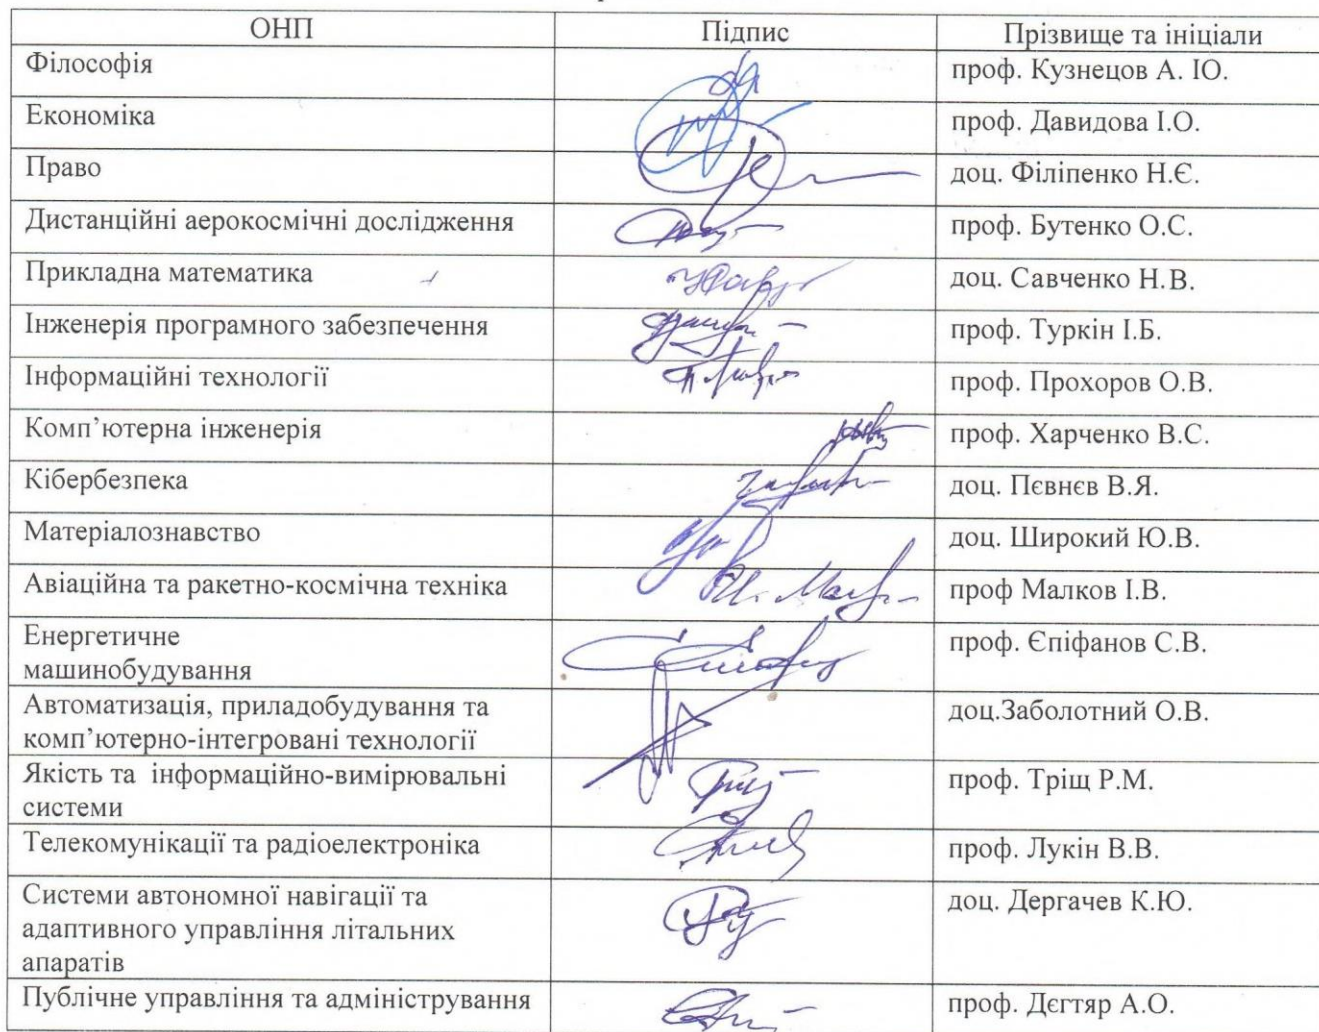 ОНП Підпис Прізвище та ініціали
Філософія проф. Кузнецов А. Ю.
Економіка проф. Давидова І.О.
Право доц. Філіпенко Н.Є.
Дистанційні аерокосмічні дослідження проф. Бутенко О.С.
Прикладна математика доц. Савченко Н.В.
Інженерія програмного забезпечення проф. Туркін І.Б.
Інформаційні технології проф. Прохоров О.В.
Комп’ютерна інженерія проф. Харченко В.С.
Кібербезпека доц. Пєвнєв В.Я.
Матеріалознавство доц. Широкий Ю.В.
Авіаційна та ракетно-космічна техніка проф Малков І.В.
Енергетичне проф. Єпіфанов С.В.
машинобудування
Автоматизація, приладобудування та доц.Заболотний О.В.
комп’ютерно-інтегровані технології
Якість та інформаційно-вимірювальні проф. Тріщ Р.М.
системи
Телекомунікації та радіоелектроніка проф. Лукін В.В.
Системи автономної навігації та доц. Дергачев К.Ю.
адаптивного управління літальних
апаратів
Публічне управління та адміністрування проф. Дєгтяр А.О.